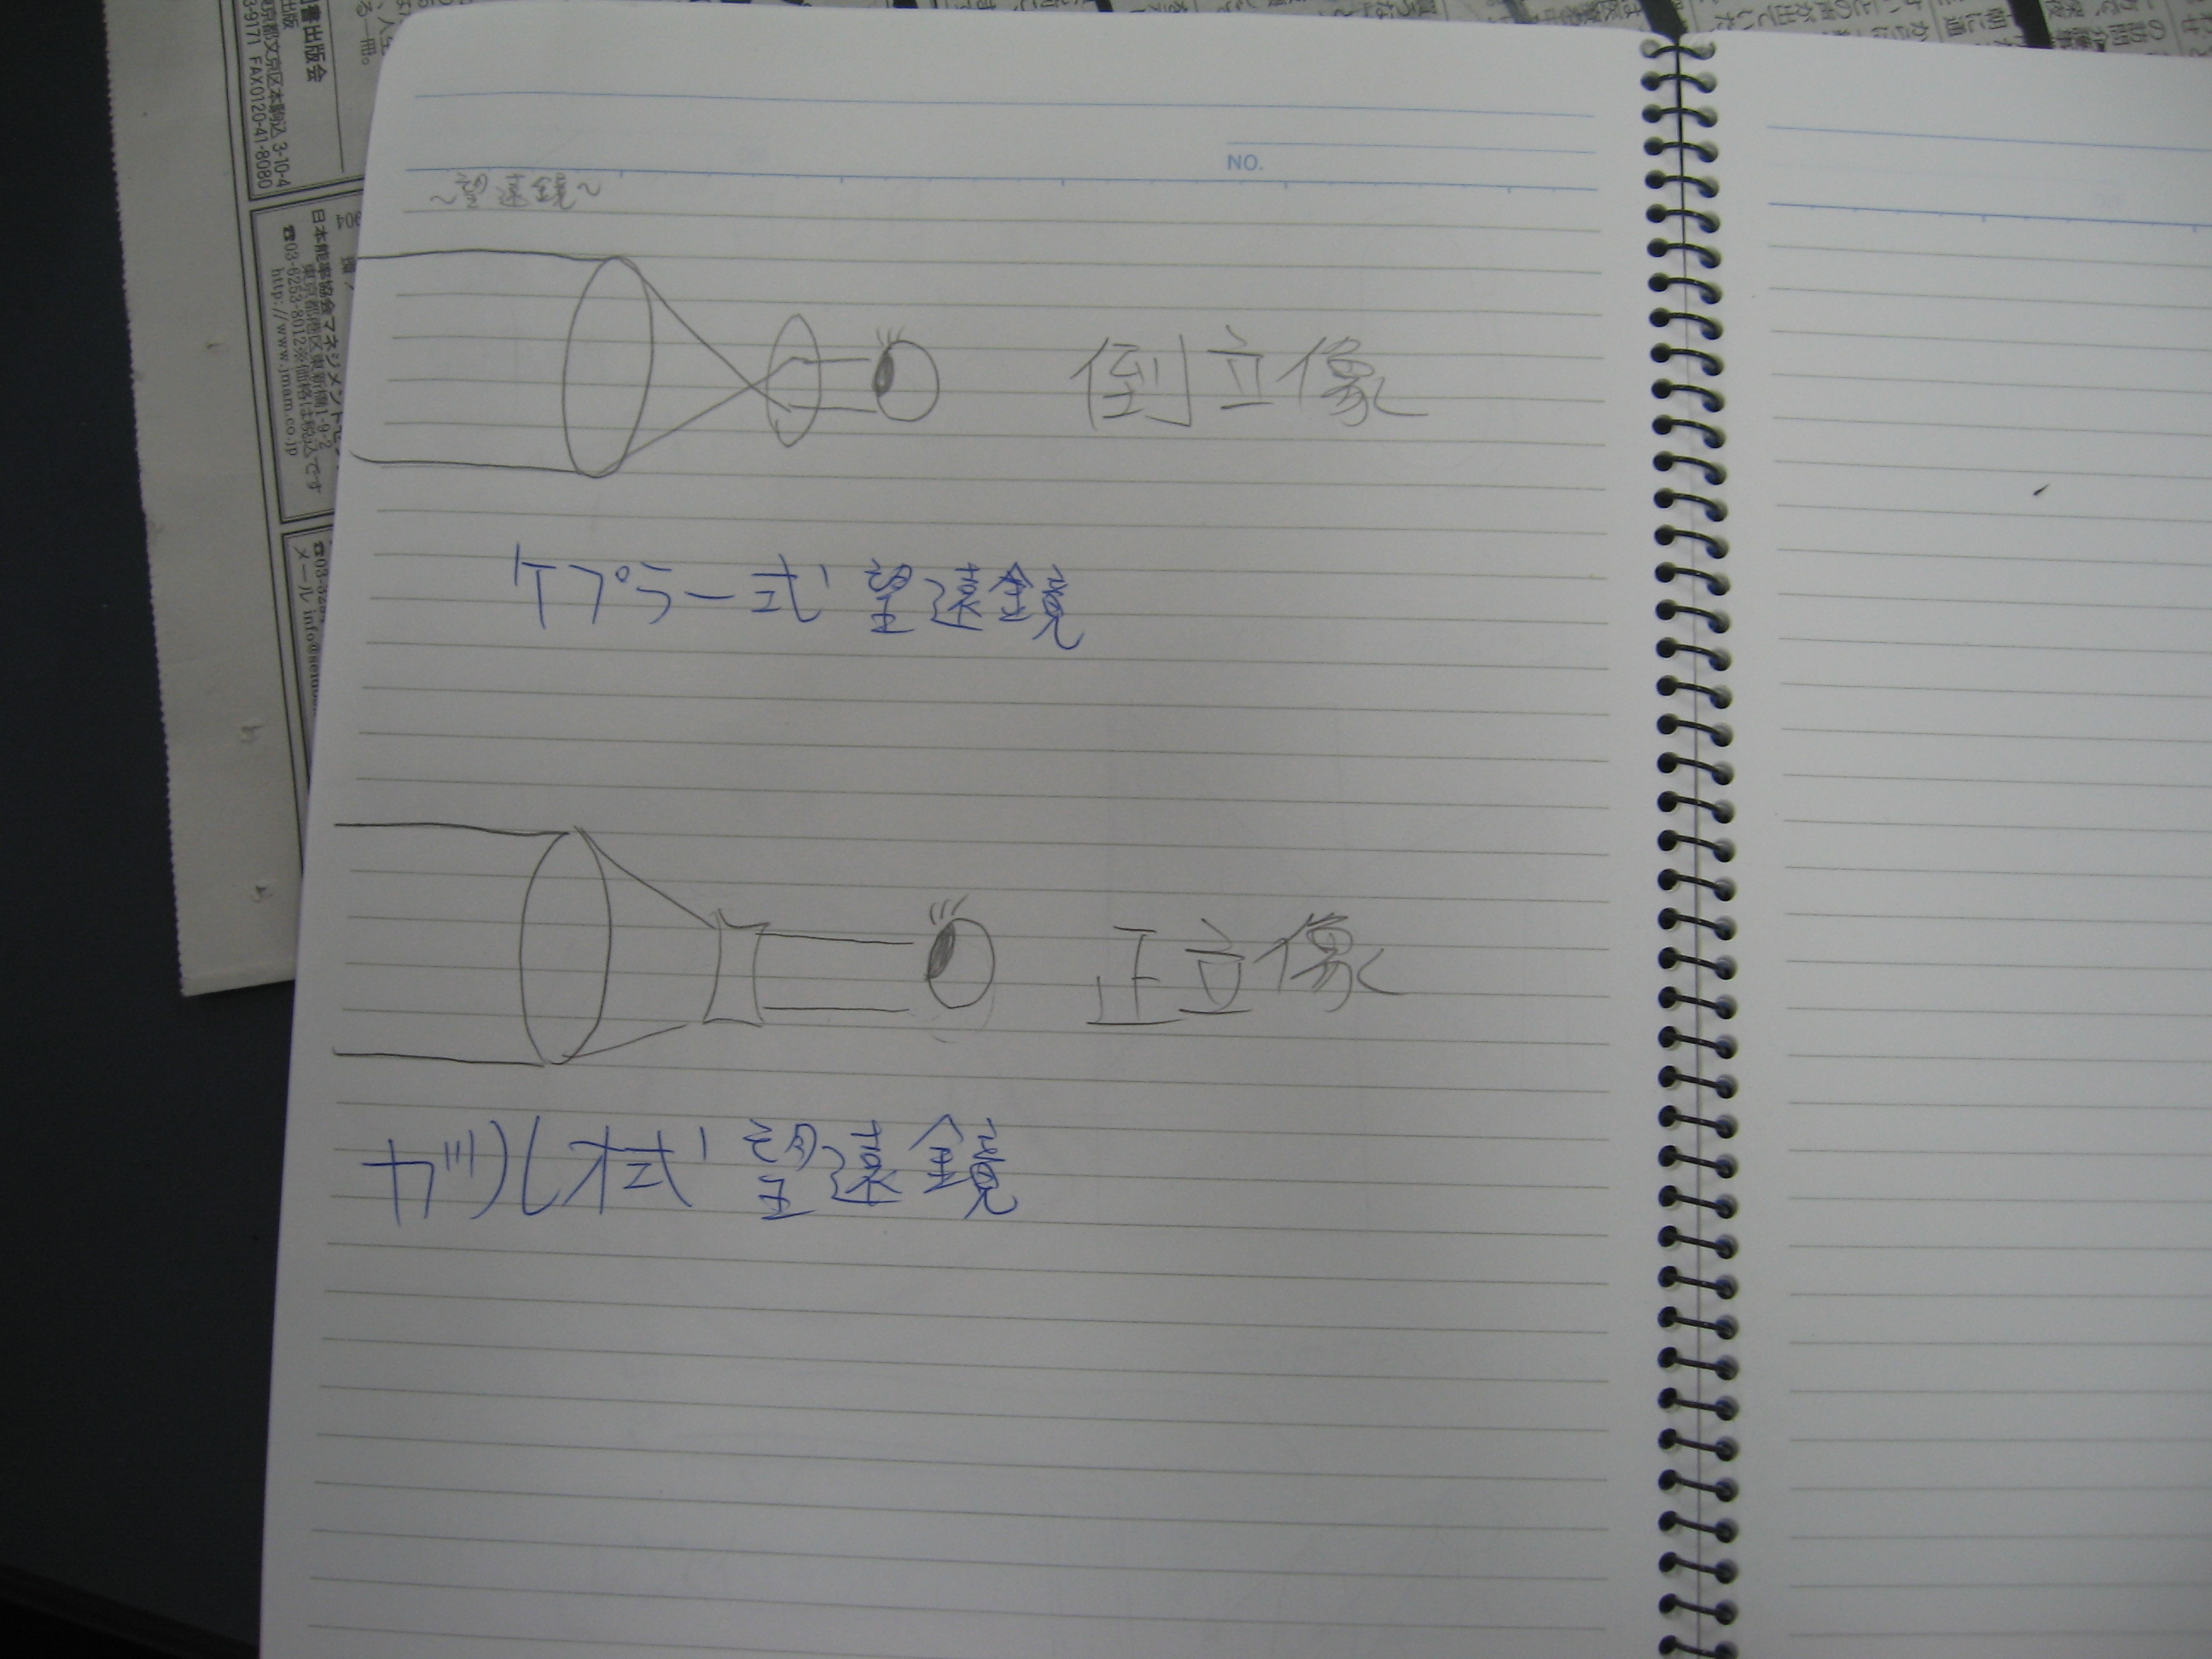 ～望遠鏡～
NO.
倒立像
ケプラー式望遠鏡
正立像
ガリレオ式望遠鏡
書出版会
東京都文京区本駒込 3-10-4
3-9171 FAX0120-41-8080
日本能率協会マネジメントセ
東京都港区東新橋1-9-2
☎03-6253-8012※価格は税込です
http://www.jmam.co.jp